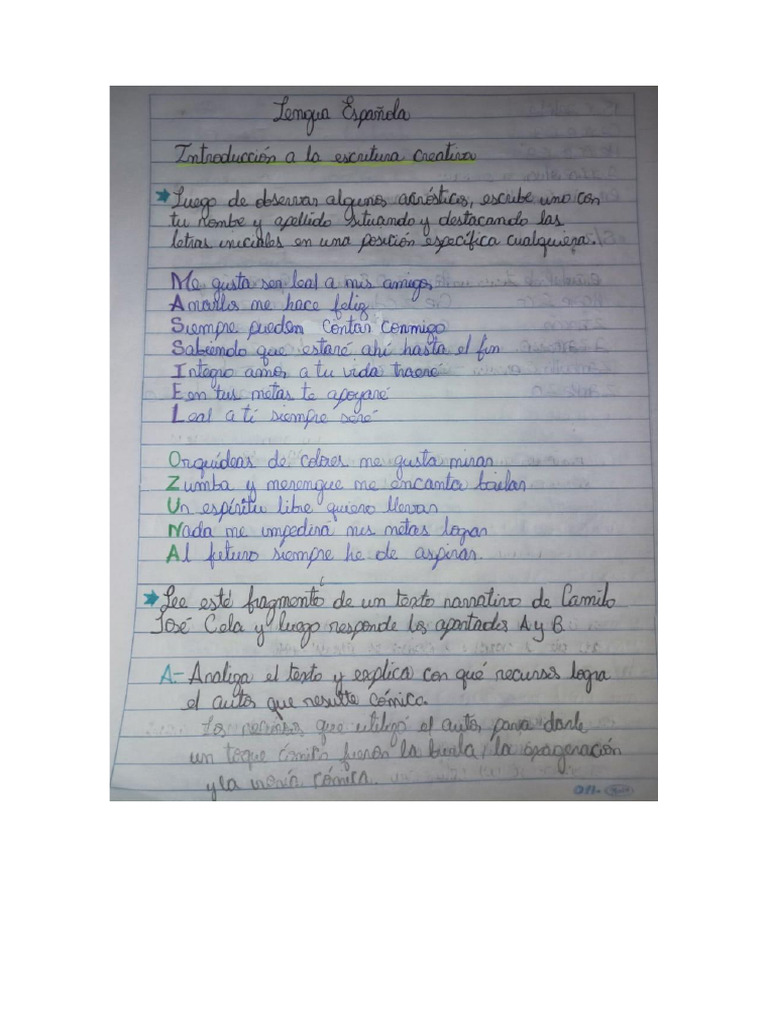 Lengua Española
Introducción a la escritura creativa
Luego de observar algunos acrósticos, escribe uno con
tu nombre y apellido situando y destacando las
letras iniciales en una posición específica cualquiera.
Me gusta ser leal a mis amigos
Amarlos me hace feliz
Siempre pueden contar conmigo
Sabiendo que estaré ahí hasta el fin
Integro amor a tu vida traeré
Een tus metas te apoyaré
Leal a ti siempre seré
Orquídeas de colores me gusta mirar
Zumba y merengue me encanta bailar
Un espíritu libre quiero llevar
Nada me impedirá mis metas lograr
Al futuro siempre he de aspirar.
Lee esté fragmento de un texto narrativo de Camilo
José Cela y luego responde los apartados A y B
A- Analiza el texto y explica con qué recursos logra
el autor que resulte cómico.
Los recursos que utilizó el autor para darle
un toque cómico fueron la burla, la exageración
y la ironía cómica.